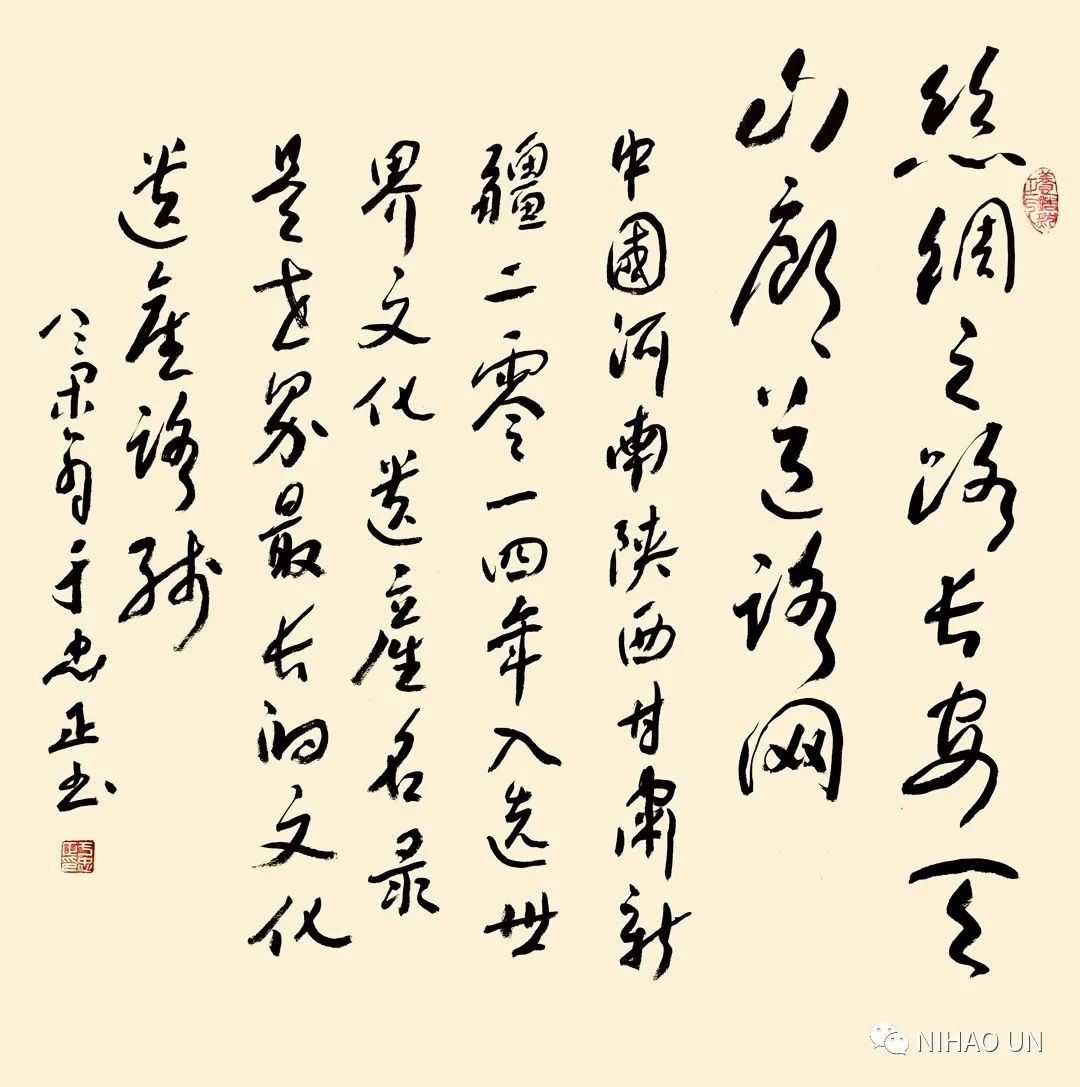 絲綢之路长安天
山廊道路网
中國河南陕西甘肃新
疆二零一四年入选世
界文化遗産名录
是世界最长的文化
遗産路线
于忠正书
NIHAO UN